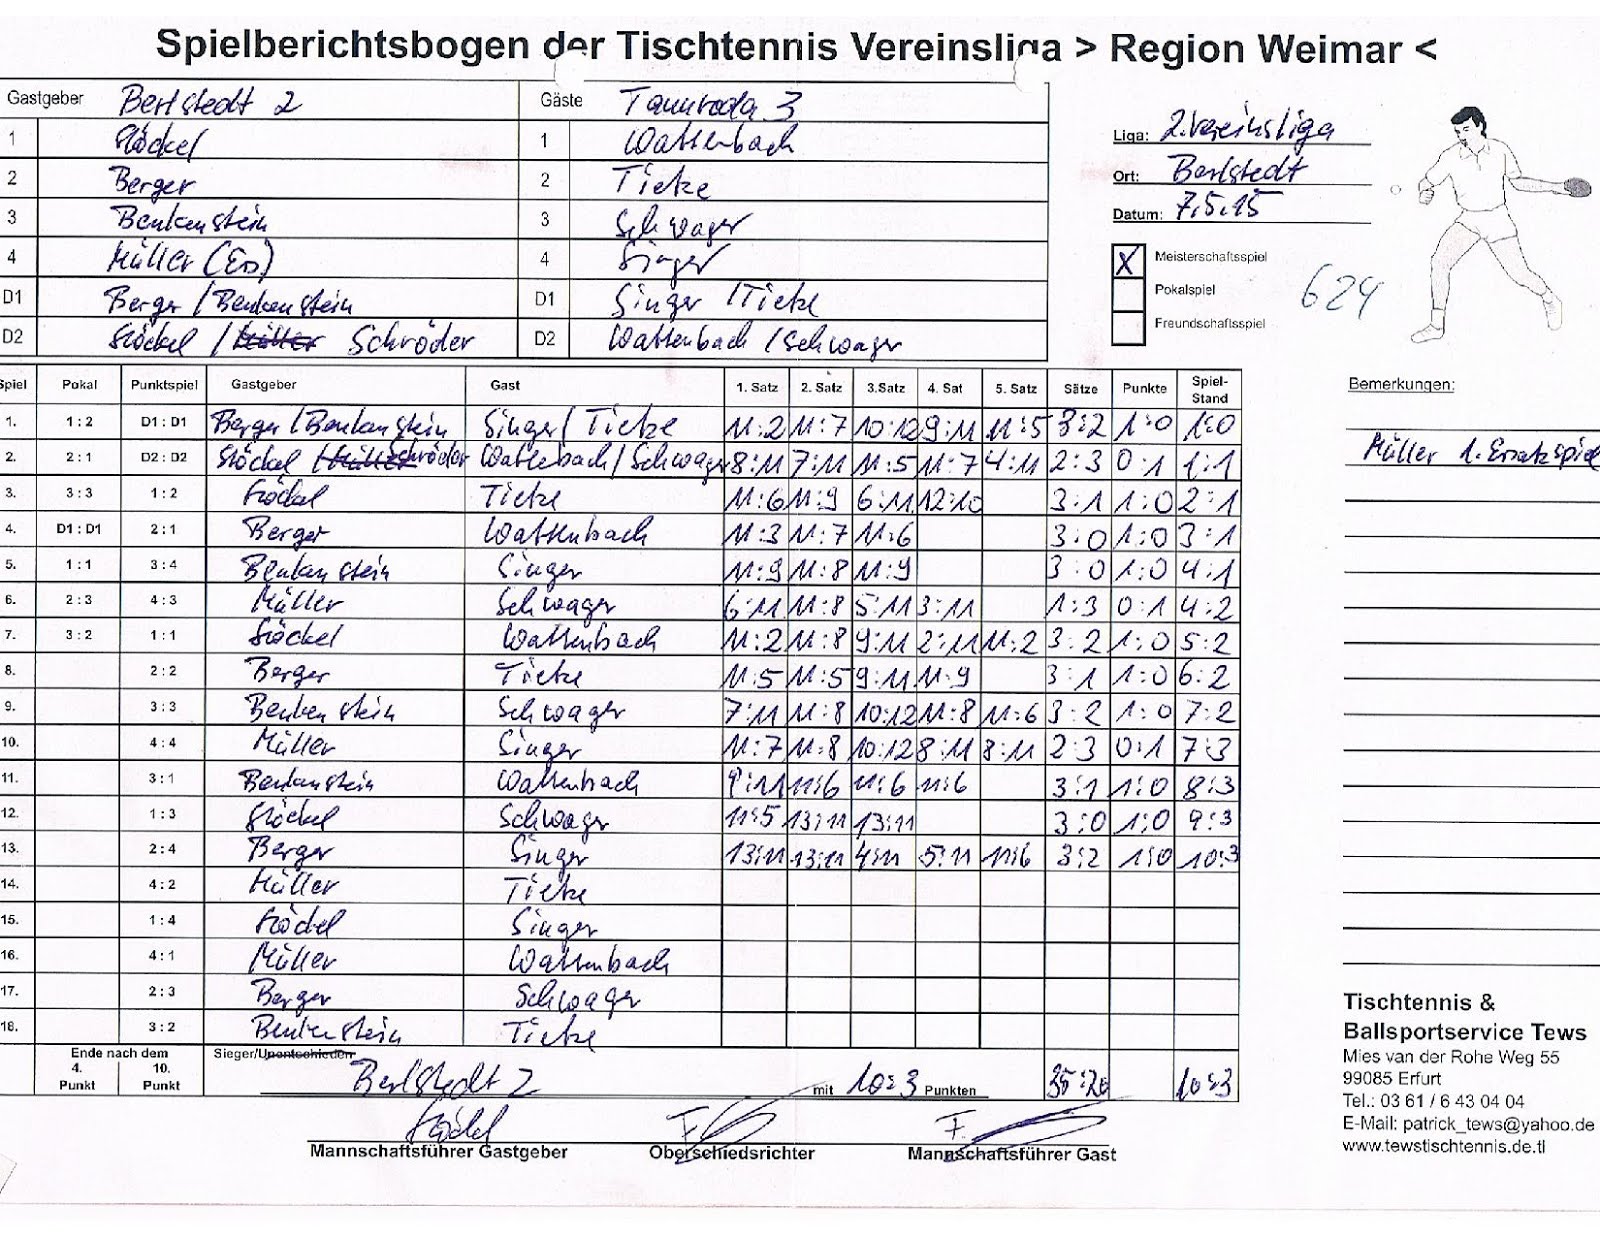 Spielberichtsbogen der Tischtennis Vereinsliga > Region Weimar <
Gastgeber Berlstedt 2 Gäste Tannroda 3
1 Stöckel 1 Wattenbach
2 Berger 2 Tietze
3 Benkenstein 3 Schwager
4 Müller (Ers) 4 Singer
D1 Berger / Benkenstein D1 Singer / Tietze
D2 Stöckel / Müller Schröder D2 Wattenbach / Schwager
Liga: 2. Vereinsliga
Ort: Berlstedt
Datum: 7.5.15
X Meisterschaftsspiel
Pokalspiel
Freundschaftsspiel
624
Spiel Pokal Punktspiel Gastgeber Gast 1. Satz 2. Satz 3.Satz 4. Sat 5. Satz Sätze Punkte Spiel-Stand
1. 1 : 2 D1 : D1 Berger / Benkenstein Singer / Tietze 11:2 11:7 10:12 9:11 11:5 3:2 1:0 1:0
2. 2 : 1 D2 : D2 Stöckel / Müller Schröder Wattenbach / Schwager 8:11 7:11 11:5 11:7 4:11 2:3 0:1 1:1
3. 3 : 3 1 : 2 Stöckel Tietze 11:6 11:9 6:11 12:10 3:1 1:0 2:1
4. D1 : D1 2 : 1 Berger Wattenbach 11:3 11:7 11:6 3:0 1:0 3:1
5. 1 : 1 3 : 4 Benkenstein Singer 11:9 11:8 11:9 3:0 1:0 4:1
6. 2 : 3 4 : 3 Müller Schwager 6:11 11:8 5:11 3:11 1:3 0:1 4:2
7. 3 : 2 1 : 1 Stöckel Wattenbach 11:2 11:8 9:11 2:11 11:2 3:2 1:0 5:2
8. 2 : 2 Berger Tietze 11:5 11:5 9:11 11:9 3:1 1:0 6:2
9. 3 : 3 Benkenstein Schwager 7:11 11:8 10:12 11:8 11:6 3:2 1:0 7:2
10. 4 : 4 Müller Singer 11:7 11:8 10:12 8:11 8:11 2:3 0:1 7:3
11. 3 : 1 Benkenstein Wattenbach 9:11 11:6 11:6 11:6 3:1 1:0 8:3
12. 1 : 3 Stöckel Schwager 11:5 13:11 13:11 3:0 1:0 9:3
13. 2 : 4 Berger Singer 13:11 13:11 4:11 5:11 11:6 3:2 1:0 10:3
14. 4 : 2 Müller Tietze
15. 1 : 4 Stöckel Singer
16. 4 : 1 Müller Wattenbach
17. 2 : 3 Berger Schwager
18. 3 : 2 Benkenstein Tietze
Ende nach dem
4. Punkt 10. Punkt
Sieger/Unentschieden
Berlstedt 2 mit 10:3 Punkten 35:20 10:3
Stöckel
Mannschaftsführer Gastgeber Oberschiedsrichter Mannschaftsführer Gast
Bemerkungen:
Müller 1. Ersatzspiel
Tischtennis &
Ballsportservice Tews
Mies van der Rohe Weg 55
99085 Erfurt
Tel.: 03 61 / 6 43 04 04
E-Mail: patrick_tews@yahoo.de
www.tewstischtennis.de.tl